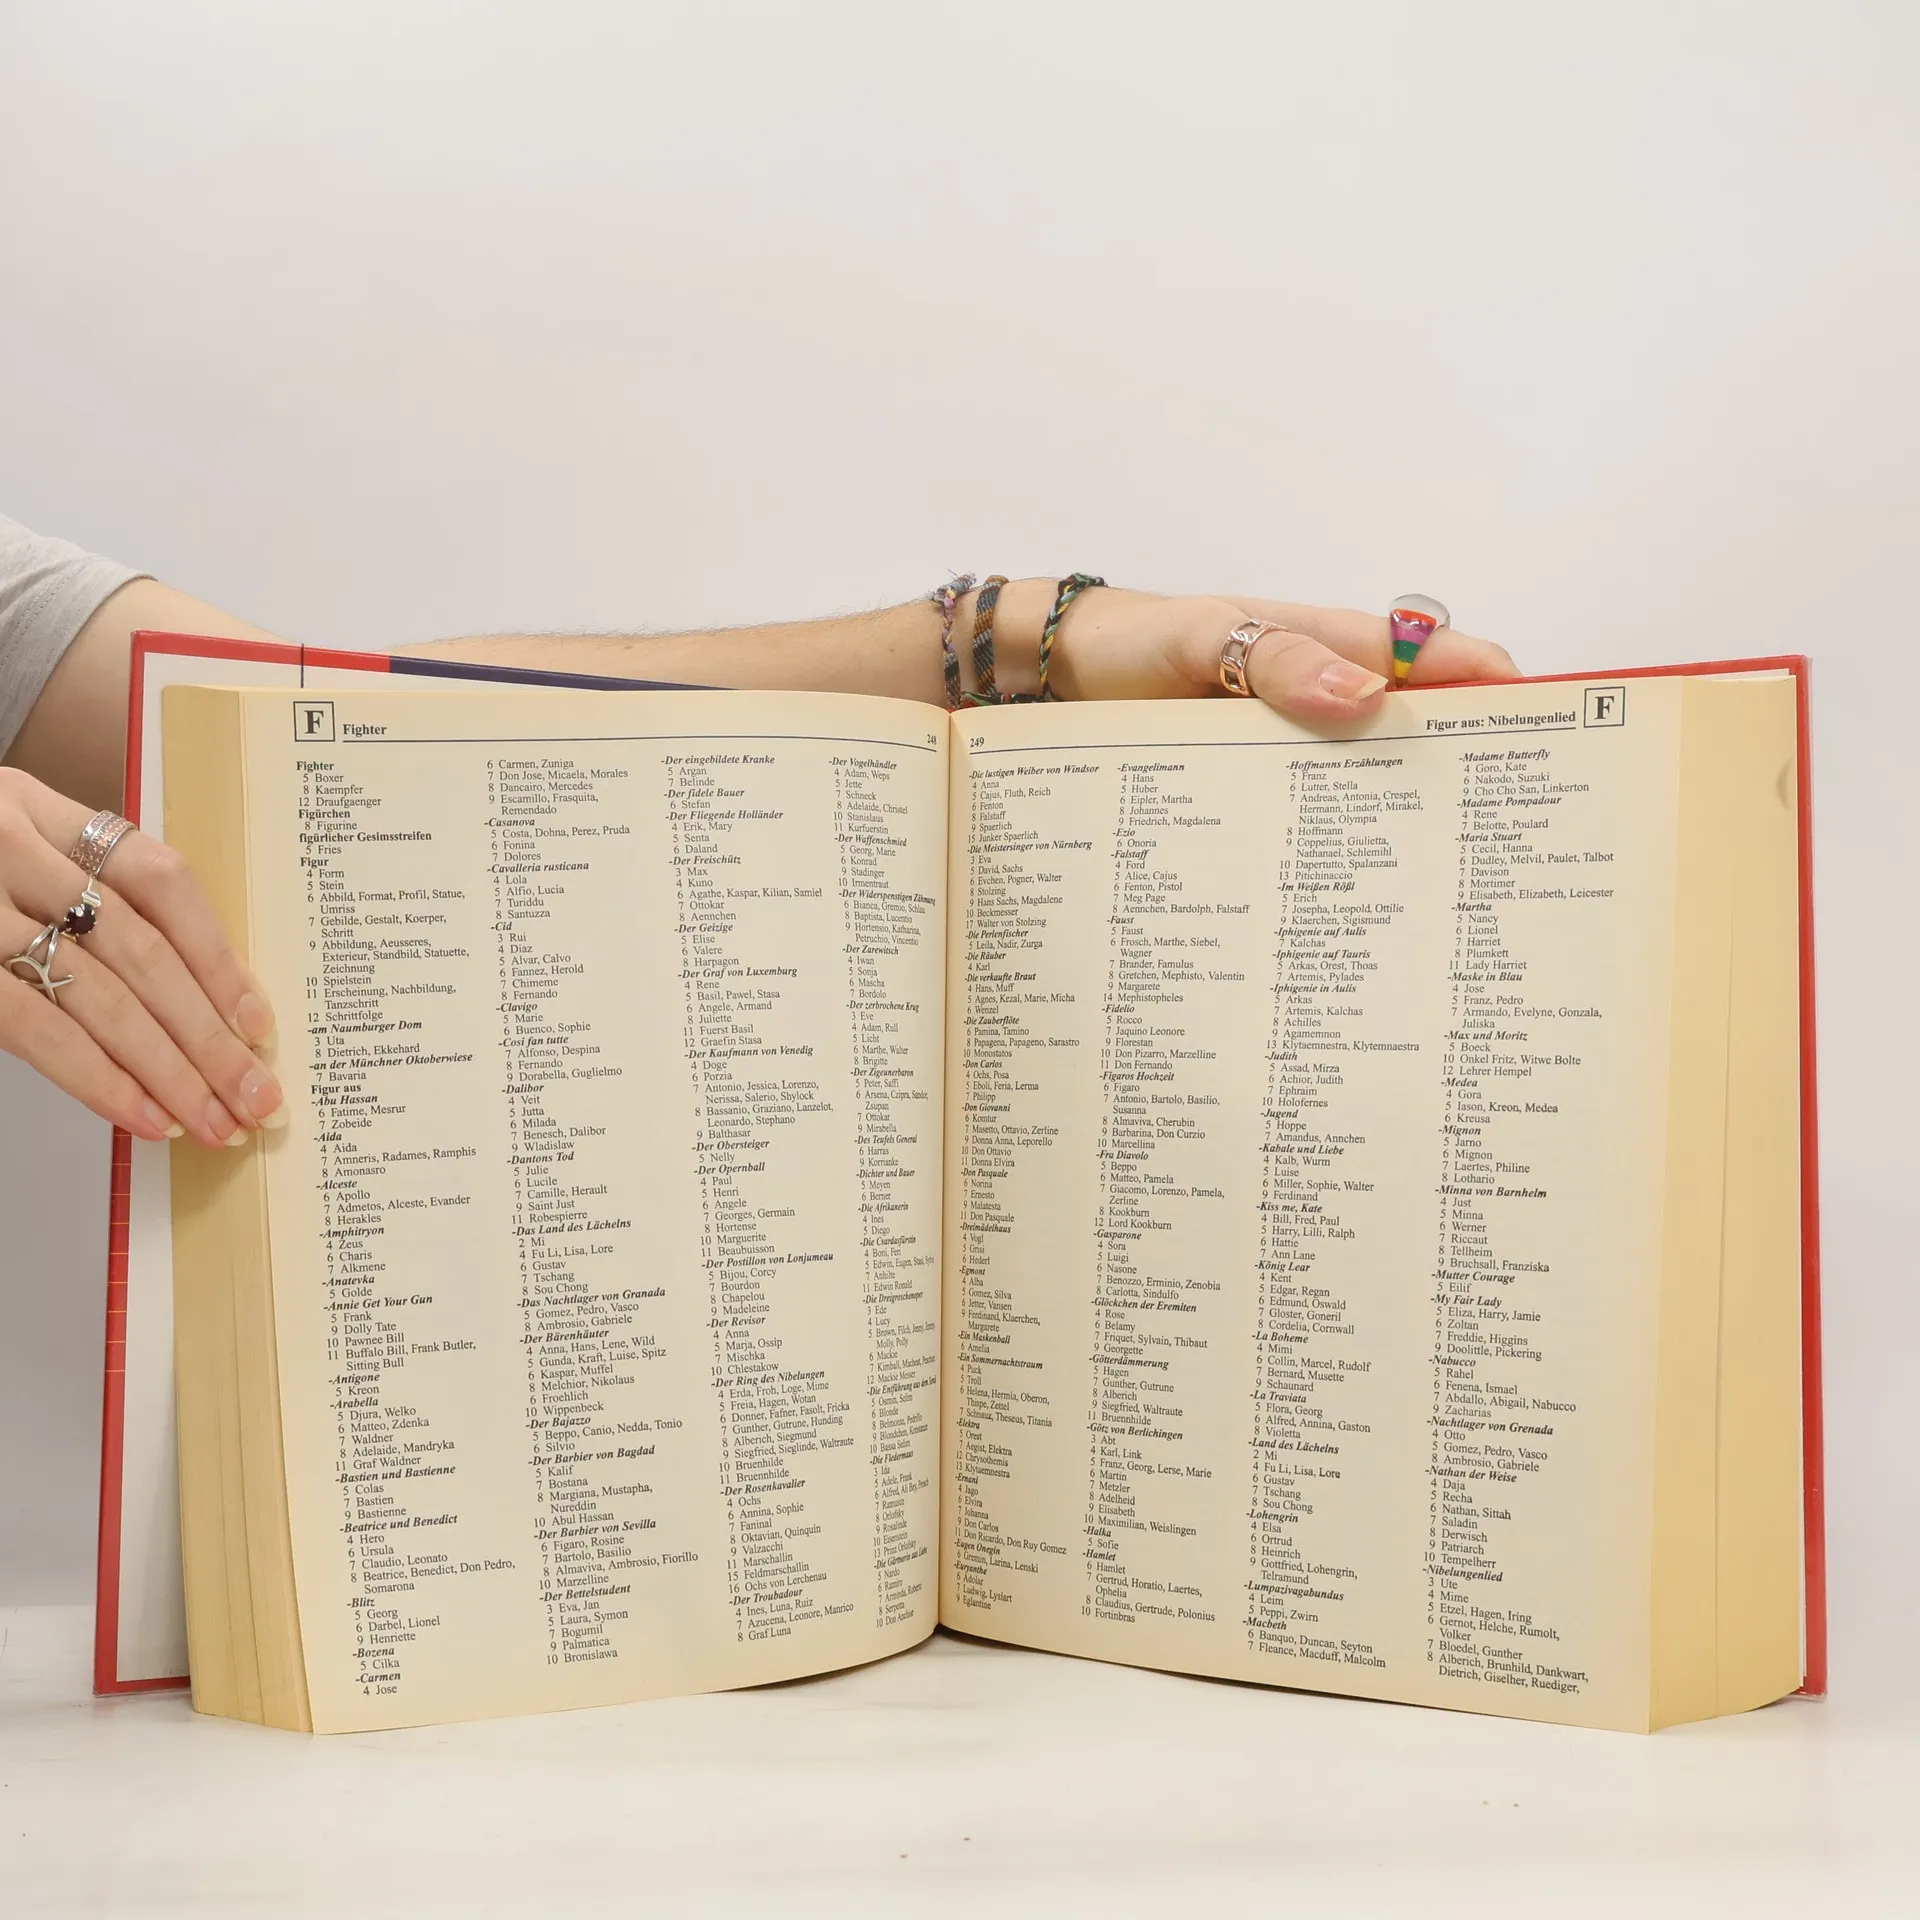 F Fighter 248
Fighter
5 Boxer
8 Kaempfer
12 Draufgaenger
Figürchen
8 Figurine
figürlicher Gesimsstreifen
5 Fries
Figur
4 Form
5 Stein
6 Abbild, Format, Profil, Statue,
Umriss
7 Gebilde, Gestalt, Koerper,
Schritt
9 Abbildung, Aeusseres,
Exterieur, Standbild, Statuette,
Zeichnung
10 Spielstein
11 Erscheinung, Nachbildung,
Tanzschritt
12 Schrittfolge
-am Naumburger Dom
3 Uta
8 Dietrich, Ekkehard
-an der Münchner Oktoberwiese
7 Bavaria
Figur aus
-Abu Hassan
6 Fatime, Mesrur
7 Zobeide
-Aida
4 Aida
7 Amneris, Radames, Ramphis
8 Amonasro
-Alceste
6 Apollo
7 Admetos, Alceste, Evander
8 Herakles
-Amphitryon
4 Zeus
6 Charis
7 Alkmene
-Anatevka
5 Golde
-Annie Get Your Gun
5 Frank
9 Dolly Tate
10 Pawnee Bill
11 Buffalo Bill, Frank Butler,
Sitting Bull
-Antigone
5 Kreon
-Arabella
5 Djura, Welko
6 Matteo, Zdenka
7 Waldner
8 Adelaide, Mandryka
11 Graf Waldner
-Bastien und Bastienne
5 Colas
7 Bastien
9 Bastienne
-Beatrice und Benedict
4 Hero
6 Ursula
7 Claudio, Leonato
8 Beatrice, Benedict, Don Pedro,
Somarona
-Blitz
5 Georg
6 Darbel, Lionel
9 Henriette
-Bozena
5 Cilka
-Carmen
4 Jose
6 Carmen, Zuniga
7 Don Jose, Micaela, Morales
8 Dancairo, Mercedes
9 Escamillo, Frasquita,
Remendado
-Casanova
5 Costa, Dohna, Perez, Pruda
6 Fonina
7 Dolores
-Cavalleria rusticana
4 Lola
5 Alfio, Lucia
7 Turiddu
8 Santuzza
-Cid
3 Rui
4 Diaz
5 Alvar, Calvo
6 Fannez, Herold
7 Chimeme
8 Fernando
-Clavigo
5 Marie
6 Buenco, Sophie
-Cosi fan tutte
7 Alfonso, Despina
8 Fernando
9 Dorabella, Guglielmo
-Dalibor
4 Veit
5 Jutta
6 Milada
7 Benesch, Dalibor
9 Wladislaw
-Dantons Tod
5 Julie
6 Lucile
7 Camille, Herault
9 Saint Just
11 Robespierre
-Das Land des Lächelns
2 Mi
4 Fu Li, Lisa, Lore
6 Gustav
7 Tschang
8 Sou Chong
-Das Nachtlager von Granada
5 Gomez, Pedro, Vasco
8 Ambrosio, Gabriele
-Der Bärenhäuter
4 Anna, Hans, Lene, Wild
5 Gunda, Kraft, Luise, Spitz
6 Kaspar, Muffel
8 Melchior, Nikolaus
9 Froehlich
10 Wippenbeck
-Der Bajazzo
5 Beppo, Canio, Nedda, Tonio
6 Silvio
-Der Barbier von Bagdad
5 Kalif
7 Bostana
8 Margiana, Mustapha,
Nureddin
10 Abul Hassan
-Der Barbier von Sevilla
6 Figaro, Rosine
7 Bartolo, Basilio
8 Almaviva, Ambrosio, Fiorillo
10 Marzelline
-Der Bettelstudent
3 Eva, Jan
5 Laura, Symon
7 Bogumil
9 Palmatica
10 Bronislawa
-Der eingebildete Kranke
5 Argan
7 Belinde
-Der fidele Bauer
6 Stefan
-Der Fliegende Holländer
4 Erik, Mary
5 Senta
6 Daland
-Der Freischütz
3 Max
4 Kuno
6 Agathe, Kaspar, Kilian, Samiel
7 Ottokar
8 Aennchen
-Der Geizige
5 Elise
6 Valere
8 Harpagon
-Der Graf von Luxemburg
4 Rene
5 Basil, Pawel, Stasa
6 Angele, Armand
8 Juliette
11 Fuerst Basil
12 Graefin Stasa
-Der Kaufmann von Venedig
4 Doge
6 Porzia
7 Antonio, Jessica, Lorenzo,
Nerissa, Salerio, Shylock
8 Bassanio, Graziano, Lanzelot,
Leonardo, Stephano
9 Balthasar
-Der Obersteiger
5 Nelly
-Der Opernball
4 Paul
5 Henri
6 Angele
7 Georges, Germain
8 Hortense
10 Marguerite
11 Beaubuisson
-Der Postillon von Lonjumeau
5 Bijou, Corcy
7 Bourdon
8 Chapelou
9 Madeleine
-Der Revisor
4 Anna
5 Marja, Ossip
7 Mischka
10 Chlestakow
-Der Ring des Nibelungen
4 Erda, Froh, Loge, Mime
5 Freia, Hagen, Wotan
6 Donner, Fafner, Fasolt, Fricka
7 Gunther, Gutrune, Hunding
8 Alberich, Siegmund
9 Siegfried, Sieglinde, Waltraute
10 Bruenhilde
11 Bruennhilde
-Der Rosenkavalier
4 Ochs
6 Annina, Sophie
7 Faninal
8 Oktavian, Quinquin
9 Valzacchi
11 Marschallin
15 Feldmarschallin
16 Ochs von Lerchenau
-Der Troubadour
4 Ines, Luna, Ruiz
7 Azucena, Leonore, Manrico
8 Graf Luna
-Der Vogelhändler
4 Adam, Weps
5 Jette
7 Schneck
8 Adelaide, Christel
10 Stanislaus
11 Kurfuerstin
-Der Waffenschmied
5 Georg, Marie
6 Konrad
9 Stadinger
10 Irmentraut
-Der Widerspenstigen Zähmung
6 Bianca, Gremio, Schlau
8 Baptista, Lucentio
9 Hortensio, Katharina,
Petruchio, Vincentio
-Der Zarewitsch
4 Iwan
5 Sonja
6 Mascha
7 Bordolo
-Der zerbrochene Krug
3 Eve
4 Adam, Rull
5 Licht
6 Marthe, Walter
8 Brigitte
-Der Zigeunerbaron
5 Peter, Saffi
6 Arsena, Czipra, Sandor,
Zsupan
7 Ottokar
8 Mirabella
-Des Teufels General
6 Harras
9 Korrianke
-Dichter und Bauer
5 Meyen
6 Berner
-Die Afrikanerin
4 Ines
5 Diego
-Die Csardasfürstin
4 Boni, Feri
5 Edwin, Eugen, Stasi,
7 Anhilte
11 Edwin Ronald
-Die Dreigroschenoper
3 Ede
4 Lucy
5 Brown, Filch, Jenny,
Molly, Polly
6 Mackie
7 Kimball, Macheat,
12 Mackie Messer
-Die Entführung aus dem
5 Osmin, Selim
6 Blonde
8 Belmonte, Pedrillo
9 Blondchen,
10 Bassa Selim
-Die Fledermaus
3 Ida
5 Adele, Frank
6 Alfred, Ali Bey,
7 Ramusin
8 Orlofsky
9 Rosalinde
10 Eisenstein
13 Prinz Orlofsky
-Die Gärtnerin aus Liebe
5 Nardo
6 Ramiro
7 Arminda,
8 Serpetta
10 Don Anchise
249 Figur aus: Nibelungenlied F
-Die lustigen Weiber von Windsor
4 Anna
5 Cajus, Fluth, Reich
6 Fenton
8 Falstaff
9 Spaerlich
15 Junker Spaerlich
-Die Meistersinger von Nürnberg
3 Eva
5 David, Sachs
6 Evchen, Pogner, Walter
8 Stolzing
9 Hans Sachs, Magdalene
10 Beckmesser
17 Walter von Stolzing
-Die Perlenfischer
5 Leila, Nadir, Zurga
-Die Räuber
4 Karl
-Die verkaufte Braut
4 Hans, Muff
5 Agnes, Kezal, Marie, Micha
6 Wenzel
-Die Zauberflöte
6 Pamina, Tamino
8 Papagena, Papageno, Sarastro
10 Monostatos
-Don Carlos
4 Ochs, Posa
5 Eboli, Feria, Lerma
7 Philipp
-Don Giovanni
6 Komtur
7 Masetto, Ottavio, Zerline
9 Donna Anna, Leporello
10 Don Ottavio
11 Donna Elvira
-Don Pasquale
6 Norina
7 Ernesto
9 Malatesta
11 Don Pasquale
-Dreimädelhaus
4 Vogl
5 Grisi
6 Hederl
-Egmont
4 Alba
5 Gomez, Silva
6 Jetter, Vansen
9 Ferdinand, Klaerchen,
Margarete
-Ein Maskenball
6 Amelia
-Ein Sommernachtstraum
4 Puck
5 Troll
6 Helena, Hermia, Oberon,
Thispe, Zettel
7 Schnauz, Theseus, Titania
-Elektra
5 Orest
7 Aegist, Elektra
12 Chrysothemis
13 Klytaemnestra
-Ernani
4 Jago
6 Elvira
7 Johanna
9 Don Carlos
11 Don Ricardo, Don Ruy Gomez
-Eugen Onegin
6 Gremin, Larina, Lenski
-Euryanthe
6 Adolar
7 Ludwig, Lysiart
9 Eglantine
-Evangelimann
4 Hans
5 Huber
6 Eipler, Martha
8 Johannes
9 Friedrich, Magdalena
-Ezio
6 Onoria
-Falstaff
4 Ford
5 Alice, Cajus
6 Fenton, Pistol
7 Meg Page
8 Aennchen, Bardolph, Falstaff
-Faust
5 Faust
6 Frosch, Marthe, Siebel,
Wagner
7 Brander, Famulus
8 Gretchen, Mephisto, Valentin
9 Margarete
14 Mephistopheles
-Fidelio
5 Rocco
7 Jaquino Leonore
9 Florestan
10 Don Pizarro, Marzelline
11 Don Fernando
-Figaros Hochzeit
6 Figaro
7 Antonio, Bartolo, Basilio,
Susanna
8 Almaviva, Cherubin
9 Barbarina, Don Curzio
10 Marcellina
-Fra Diavolo
5 Beppo
6 Matteo, Pamela
7 Giacomo, Lorenzo, Pamela,
Zerline
8 Kookburn
12 Lord Kookburn
-Gasparone
4 Sora
5 Luigi
6 Nasone
7 Benozzo, Erminio, Zenobia
8 Carlotta, Sindulfo
-Glöckchen der Eremiten
4 Rose
6 Belamy
7 Friquet, Sylvain, Thibaut
9 Georgette
-Götterdämmerung
5 Hagen
7 Gunther, Gutrune
8 Alberich
9 Siegfried, Waltraute
11 Bruennhilde
-Götz von Berlichingen
3 Abt
4 Karl, Link
5 Franz, Georg, Lerse, Marie
6 Martin
7 Metzler
8 Adelheid
9 Elisabeth
10 Maximilian, Weislingen
-Halka
5 Sofie
-Hamlet
6 Hamlet
7 Gertrud, Horatio, Laertes,
Ophelia
8 Claudius, Gertrude, Polonius
10 Fortinbras
-Hoffmanns Erzählungen
5 Franz
6 Lutter, Stella
7 Andreas, Antonia, Crespel,
Hermann, Lindorf, Mirakel,
Niklaus, Olympia
8 Hoffmann
9 Coppelius, Giulietta,
Nathanael, Schlemihl
10 Dapertutto, Spalanzani
13 Pitichinaccio
-Im Weißen Rößl
5 Erich
7 Josepha, Leopold, Ottilie
9 Klaerchen, Sigismund
-Iphigenie auf Aulis
7 Kalchas
-Iphigenie auf Tauris
5 Arkas, Orest, Thoas
7 Artemis, Pylades
-Iphigenie in Aulis
5 Arkas
7 Artemis, Kalchas
8 Achilles
9 Agamemnon
13 Klytaemnestra, Klytemnaestra
-Judith
5 Assad, Mirza
6 Achior, Judith
7 Ephraim
10 Holofernes
-Jugend
5 Hoppe
7 Amandus, Annchen
-Kabale und Liebe
4 Kalb, Wurm
5 Luise
6 Miller, Sophie, Walter
9 Ferdinand
-Kiss me, Kate
4 Bill, Fred, Paul
5 Harry, Lilli, Ralph
6 Hattie
7 Ann Lane
-König Lear
4 Kent
5 Edgar, Regan
6 Edmund, Oswald
7 Gloster, Goneril
8 Cordelia, Cornwall
-La Boheme
4 Mimi
6 Collin, Marcel, Rudolf
7 Bernard, Musette
9 Schaunard
-La Traviata
5 Flora, Georg
6 Alfred, Annina, Gaston
8 Violetta
-Land des Lächelns
2 Mi
4 Fu Li, Lisa, Lore
6 Gustav
7 Tschang
8 Sou Chong
-Lohengrin
4 Elsa
6 Ortrud
8 Heinrich
9 Gottfried, Lohengrin,
Telramund
-Lumpazivagabundus
4 Leim
5 Peppi, Zwirn
-Macbeth
6 Banquo, Duncan, Seyton
7 Fleance, Macduff, Malcolm
-Madame Butterfly
4 Goro, Kate
6 Nakodo, Suzuki
9 Cho Cho San, Linkerton
-Madame Pompadour
4 Rene
7 Belotte, Poulard
-Maria Stuart
5 Cecil, Hanna
6 Dudley, Melvil, Paulet, Talbot
7 Davison
8 Mortimer
9 Elisabeth, Elizabeth, Leicester
-Martha
5 Nancy
6 Lionel
7 Harriet
8 Plumkett
11 Lady Harriet
-Maske in Blau
4 Jose
5 Franz, Pedro
7 Armando, Evelyne, Gonzala,
Juliska
-Max und Moritz
5 Boeck
10 Onkel Fritz, Witwe Bolte
12 Lehrer Hempel
-Medea
4 Gora
5 Iason, Kreon, Medea
6 Kreusa
-Mignon
5 Jarno
6 Mignon
7 Laertes, Philine
8 Lothario
-Minna von Barnhelm
4 Just
5 Minna
6 Werner
7 Riccaut
8 Tellheim
9 Bruchsall, Franziska
-Mutter Courage
5 Eilif
-My Fair Lady
5 Eliza, Harry, Jamie
6 Zoltan
7 Freddie, Higgins
9 Doolittle, Pickering
-Nabucco
5 Rahel
6 Fenena, Ismael
7 Abdallo, Abigail, Nabucco
9 Zacharias
-Nachtlager von Grenada
4 Otto
5 Gomez, Pedro, Vasco
8 Ambrosio, Gabriele
-Nathan der Weise
4 Daja
5 Recha
6 Nathan, Sittah
7 Saladin
8 Derwisch
9 Patriarch
10 Tempelherr
-Nibelungenlied
3 Ute
4 Mime
5 Etzel, Hagen, Iring
6 Gernot, Helche, Rumolt,
Volker
7 Bloedel, Gunther
8 Alberich, Brunhild, Dankwart,
Dietrich, Giselher, Ruediger,